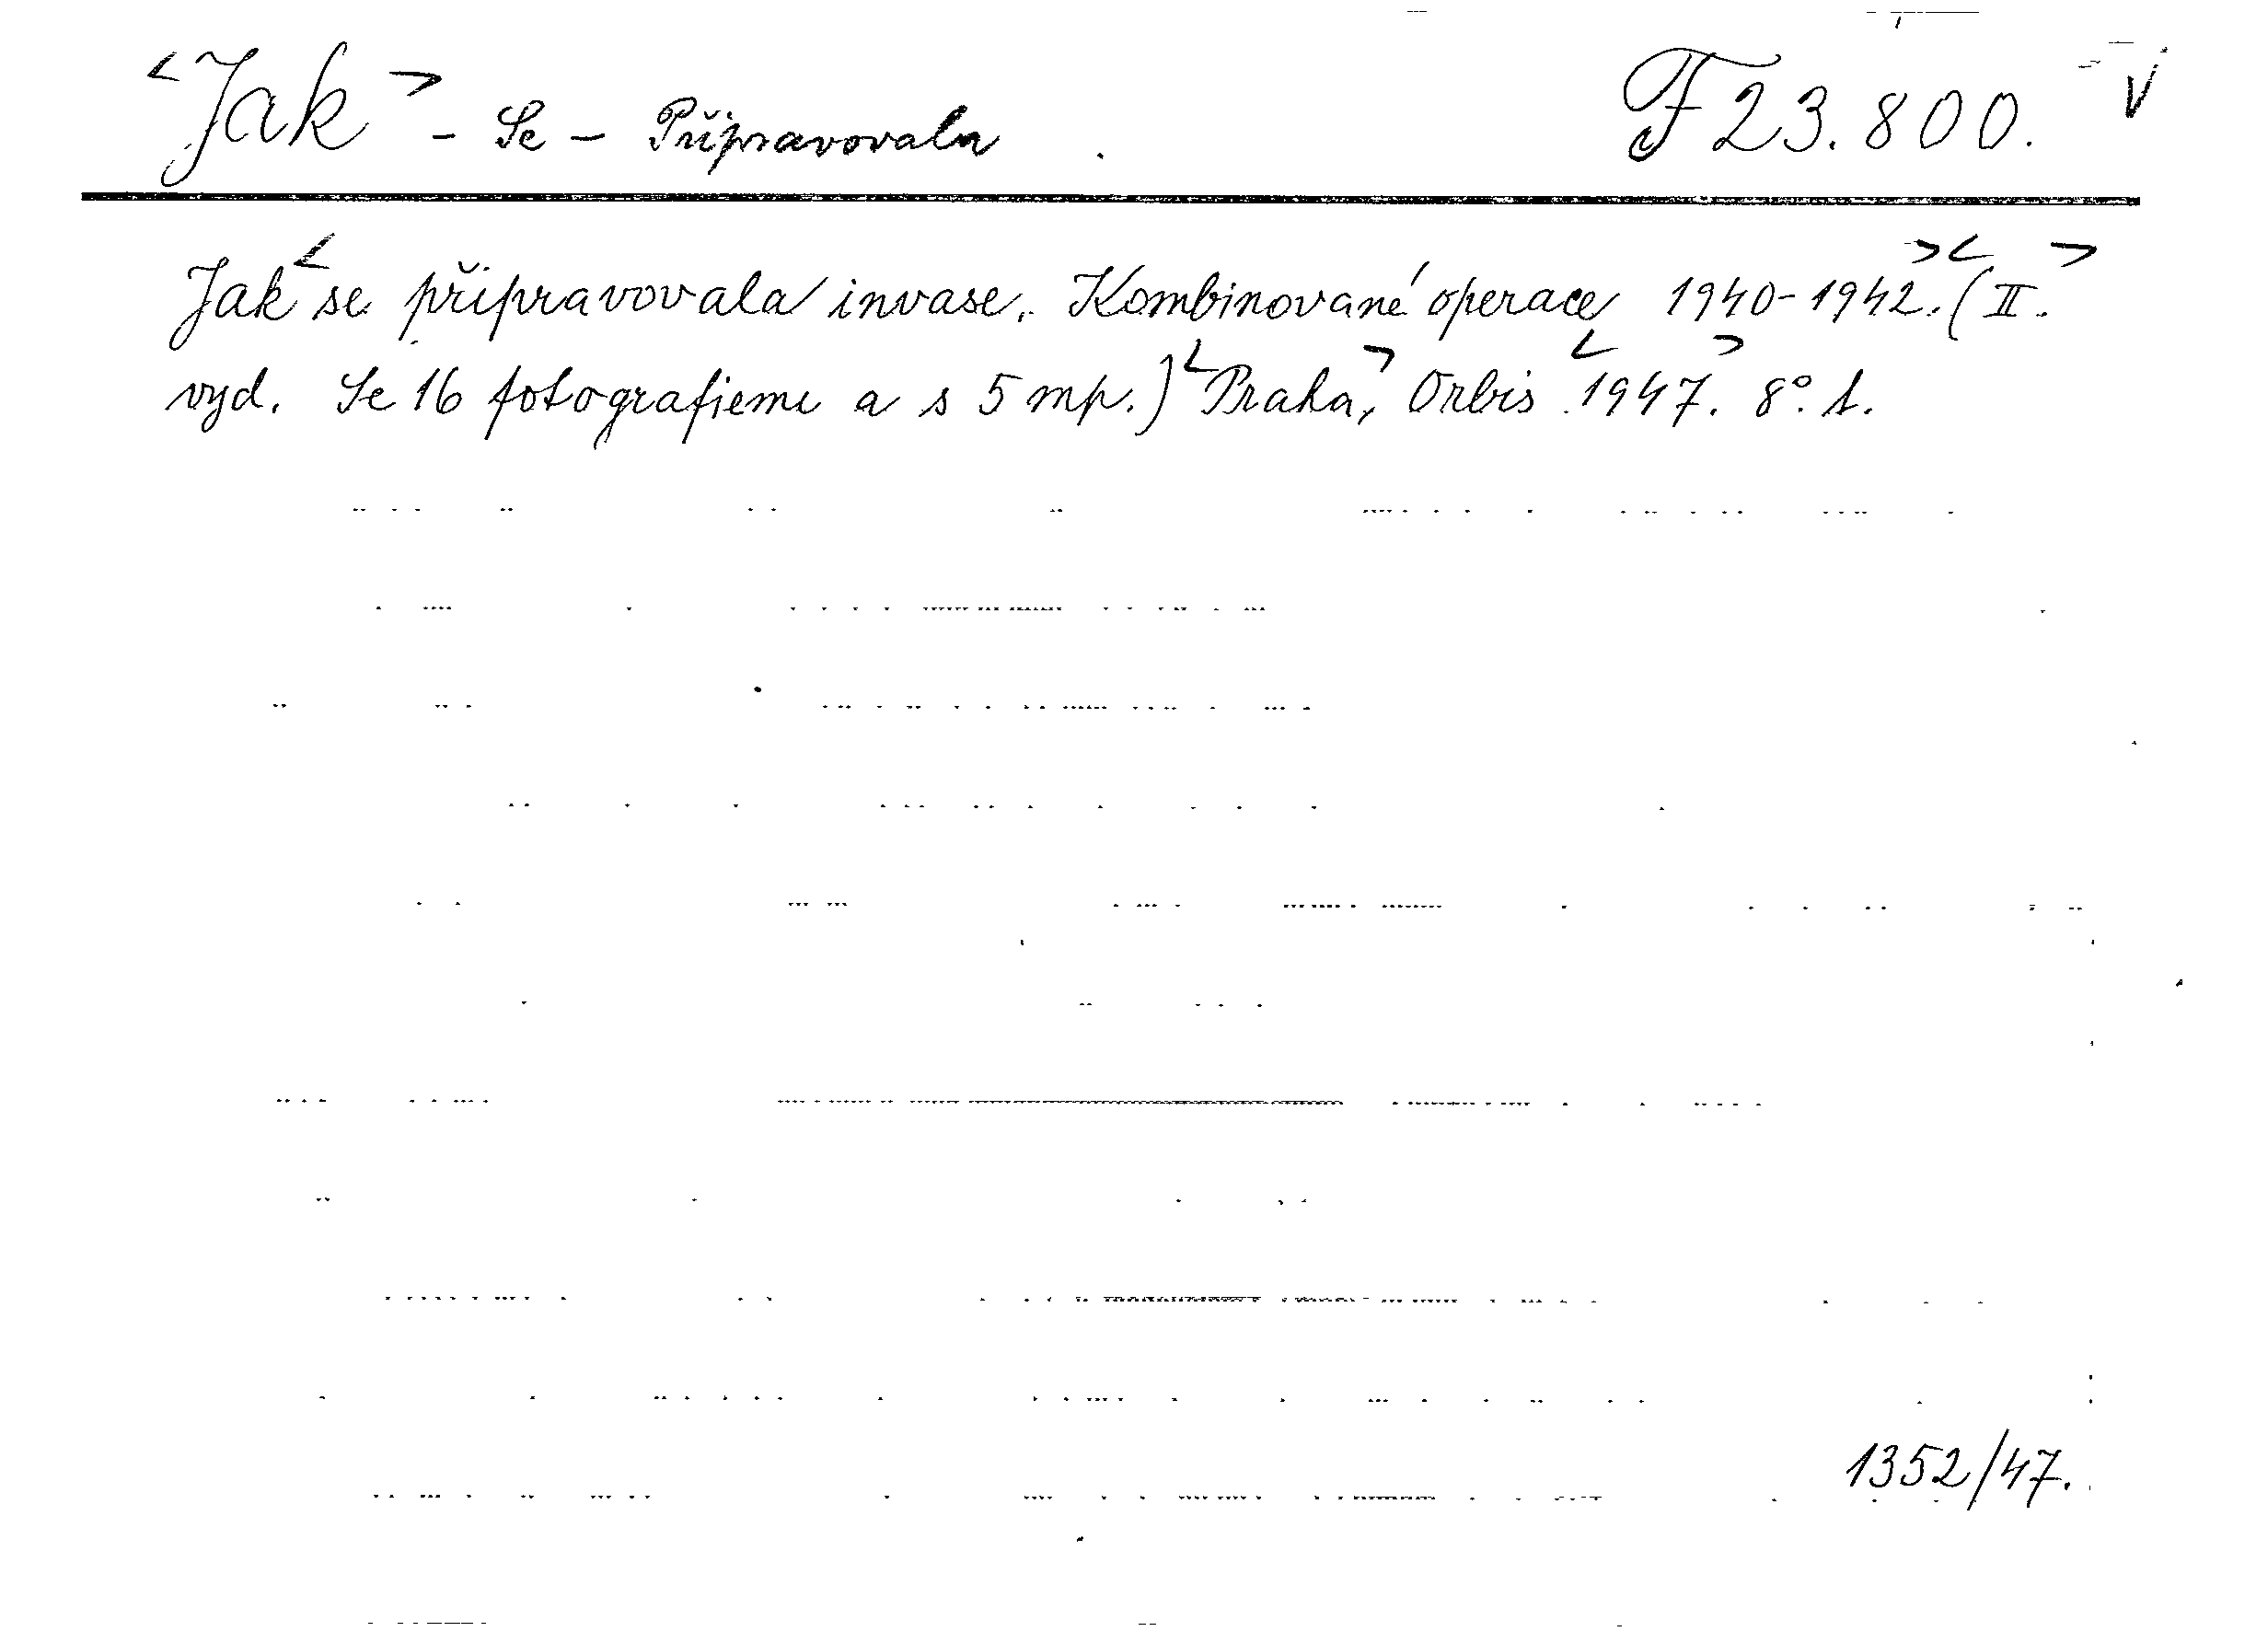 <Jak> - Se - Připravovala. F 23.800. V
Jak <se připravovala invase. Kombinované operace 1940-1942.> <(II.>
vyd. Se 16 fotografiemi a s 5 mp.) <Praha,> Orbis <1947>. 8°. 1.
1352/47.